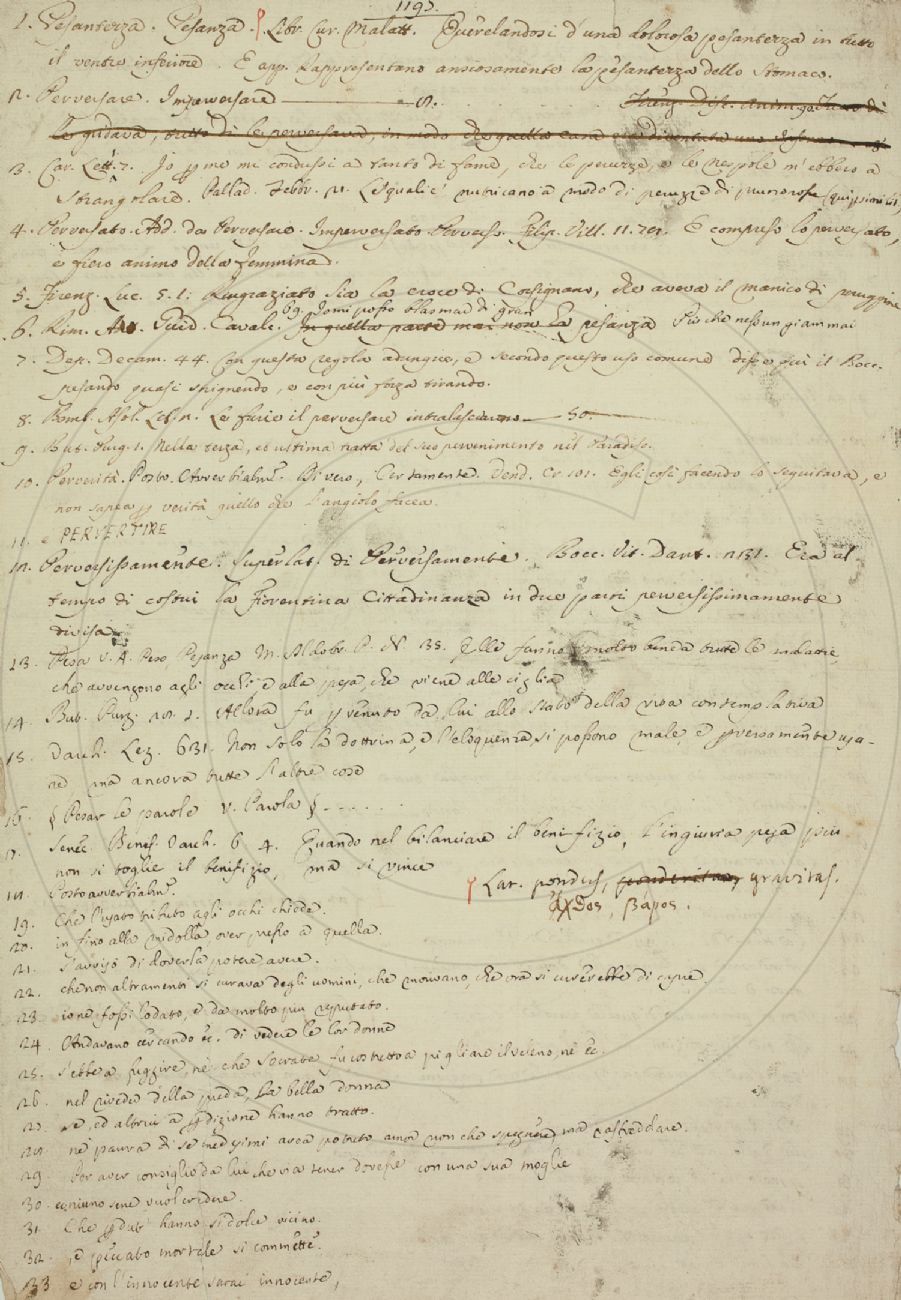 1197.
1. Pesantezza. Pesanza. Libr. Cur. Malatt. Querelandosi d'una dolorosa pesantezza in tutto
il ventre inferiore. E app. Rappresentano ansiosamente la pesantezza dello Stomaco.
2. Perversare. Imperversare
le gridava, tutto dì le perversava, in modo che quella casa era diventata uno Inferno
3. Car. Lett. 7. Io per me mi condussi a tanto di fame, che le peruzze, e le nespole m'ebbero a
strangolare. Pallad. Febbr. Le quali e' nutricano a modo di peruzze
4. Perversato. Add. da Perversare. Imperversato Perverso. Filip. Vill. 11. E compreso lo perversato,
e fiero animo della femmina.
5. Firenz. Luc. 5. 1. Ringraziato sia la croce di Corsignano, che aveva il manico di
6. Rim. Ant. Guid. Cavalc. 69. Io mi posso blasmar di gran
In quella parte mai non pesanza Più che nessun giammai
7. Dep. Decam. 44. Con questa regola adunque, e secondo questo uso comune disse qui il Bocc.
pesando quasi spignendo, e con più forza tirando.
8. Bemb. Asol. Le furie il perversare intralasciarono 50.
9. But. Purg. 1. Nella terza, et ultima tratta del suo pervenimento nel Paradiso.
10. Perverità. Posto Avverbialm. Di vero, Certamente. Vend. Cr. 101. Egli così facendo lo seguitava, e
non sapea per verità quello che l'angiolo facea.
11. e PERVERTIRE
12. Perversissimamente. Superlat. di Perversamente. Bocc. Vit. Dant. 231. Era al
tempo di costui la Fiorentina Cittadinanza in due parti perversissimamente
divisa.
13. Pesa V. A. Peso, Pesanza M. Aldobr. P. N. 35. Elle fanno molto bene a tutte le malattie,
che avvengono agli occhi, e alla pesa, che viene alle ciglia
14. But. Purg. Allora fu pervenuto da lui allo stato della vita contemplativa
15. Varch. Lez. 631. Non solo la dottrina, e l'eloquenza si possono male, e perversamente usa-
re, ma ancora tutte l'altre cose
16. § Pesar le parole v. Parola §
17. Senec. Benef. Varch. 6 4. Quando nel bilanciare il benifizio, l'ingiuria pesa più
non si toglie il benifizio, ma si vince
Lat. pondus, gravitas.
ἄχθος, βάρος.
18. Posto avverbialm.
19. Che l'usato tributo agli occhi chiede.
20. in fino alla midolla over presso a quella.
21. S'avvisò di doverla potere avere.
22. che non altramenti si curava degli uomini, che morivano, che ora si curerebbe di capre.
23. ione fossi lodato, e da molto più reputato.
24. Andavano cercando ec. di vedere le lor donne
25. S'ebbe a fuggire, nè che Socrate fu costretto a pigliare il veleno, nè ec.
26. nel riveder della preda, la bella donna
27. sè, ed altrui a perdizione hanno tratto.
28. nè paura avea potuto amor non che spegnere, ma raffreddare.
29. Per aver consiglio da lui che via tener dovesse con una sua moglie
30. e niuno sene vuol credere.
31. Che hanno sì dolce vicino.
32. , e peccato mortale si commette.
33 e con l'innocente sarai innocente,